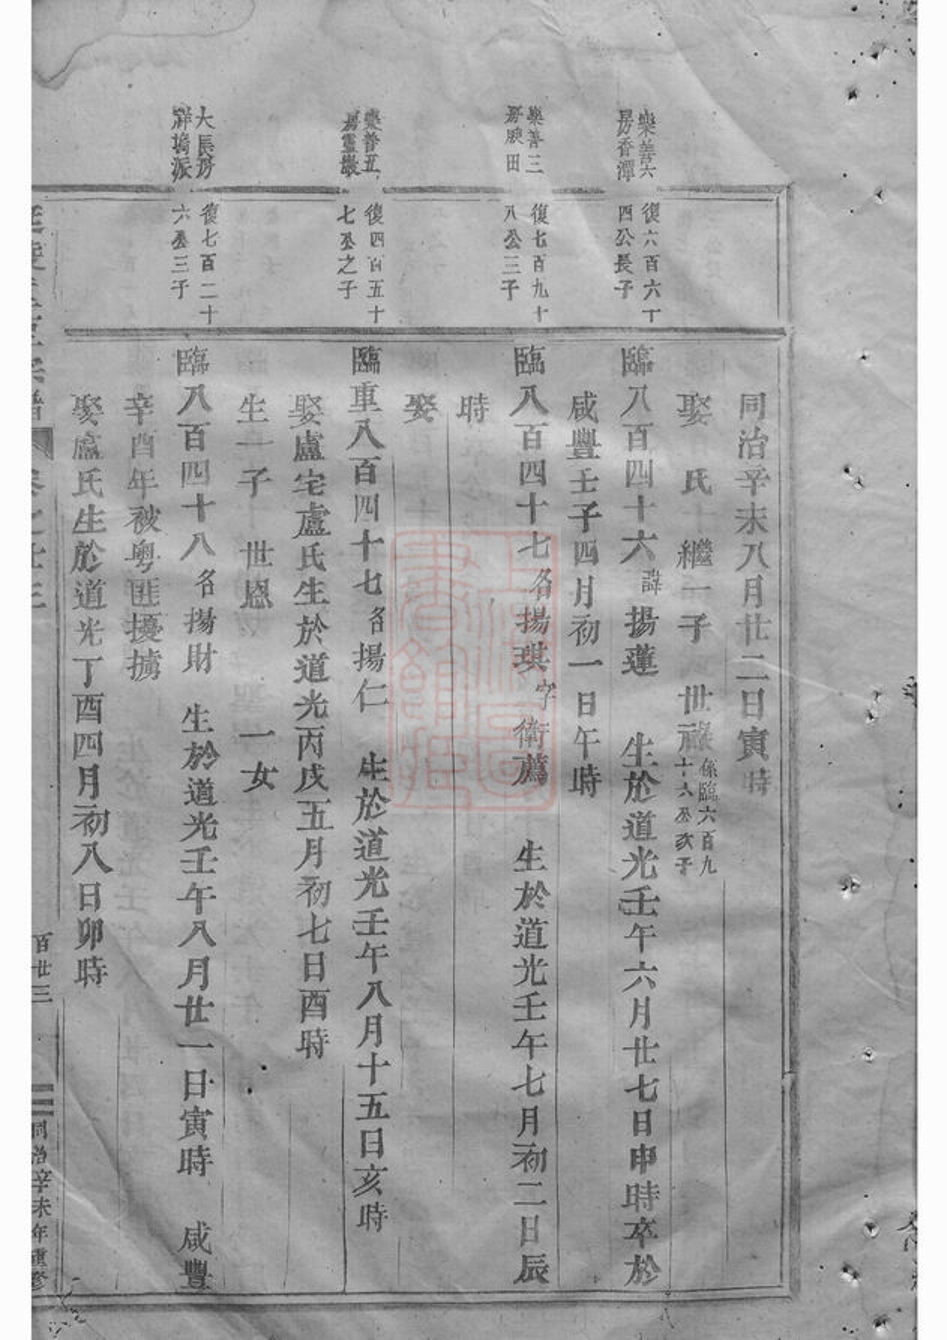 同治辛未八月廿二日寅時
娶 氏 繼一子 世祿 係臨六百九十六公次子
樂善六房香潭
復六百六丁四公長子
臨八百四十六 諱揚蓮 生於道光壬午六月廿七日申時卒於
咸豐壬子四月初一日午時
樂善三房殿田
復七百九十八公三子
臨八百四十七 名揚琪 字衛薦 生於道光壬午七月初二日辰
時
娶
樂善五房靈巖
復四百五十七公之子
臨重八百四十七 名揚仁 生於道光壬午八月十五日亥時
娶盧宅盧氏生於道光丙戌五月初七日酉時
生一子 世恩 一女
大長房
派
復七百二十六公三子
臨八百四十八 名揚財 生於道光壬午八月廿一日寅時 咸豐
辛酉年被粵匪擾擄
娶盧氏生於道光丁酉四月初八日卯時
百廿三
同治辛未年重修